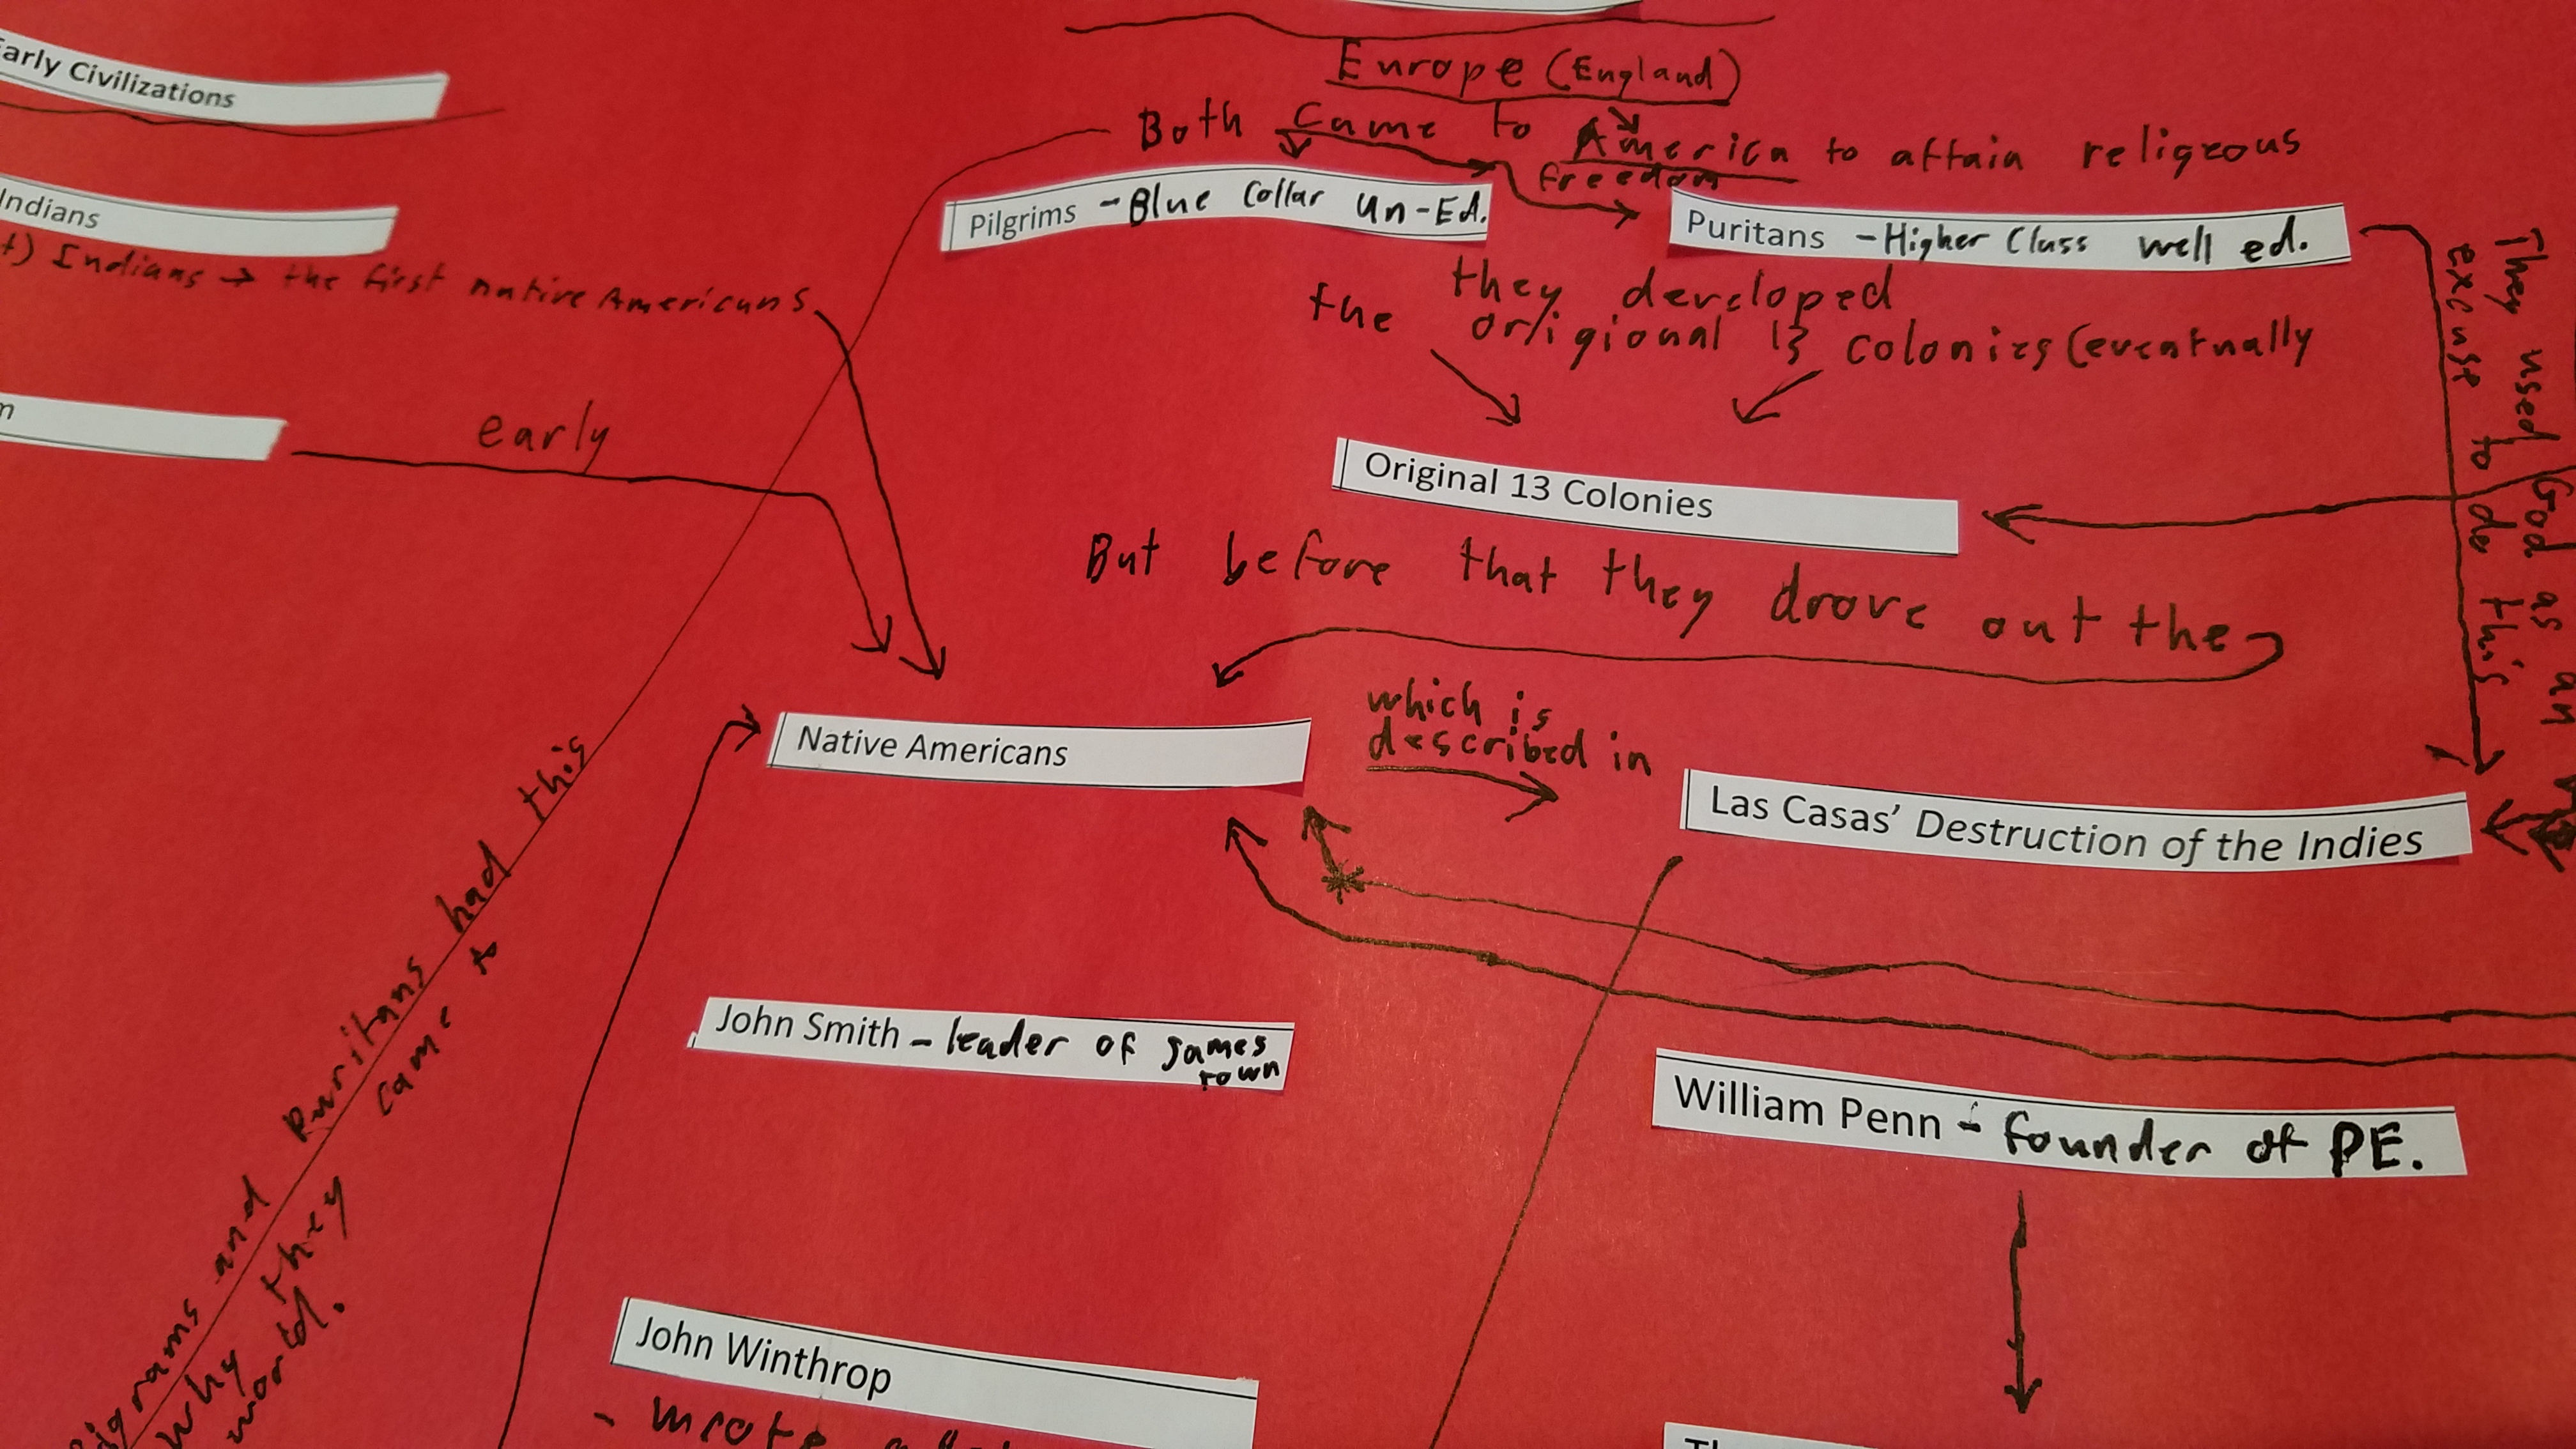 Early Civilizations
Indians
Indians → the first native Americans
early
Europe (England)
Both came to America to attain religeous
freedom
Pilgrims - Blue Collar Un-Ed.
Puritans - Higher Class well ed.
they developed
the origional 13 colonies (eventually
Original 13 Colonies
They used God as an
excuse to do this
But before that they drove out the
Native Americans
which is
described in
Las Casas' Destruction of the Indies
John Smith - leader of James
town
William Penn - founder of PE.
John Winthrop
- wrote
and Puritans had this
why they came to
world.